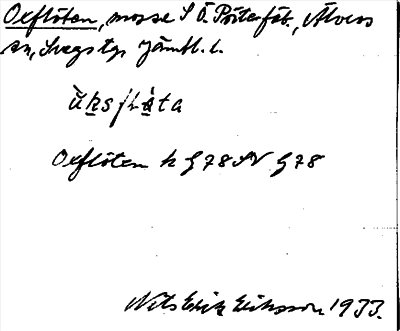 Oxflöten, mosse S Ö. Pösterfäb., Älvros
sn, Svegs tgs Jämtl. l.
ùksflǻta
Oxflöten k g 78 SV g 78
Nils Erik Eriksson 1933.